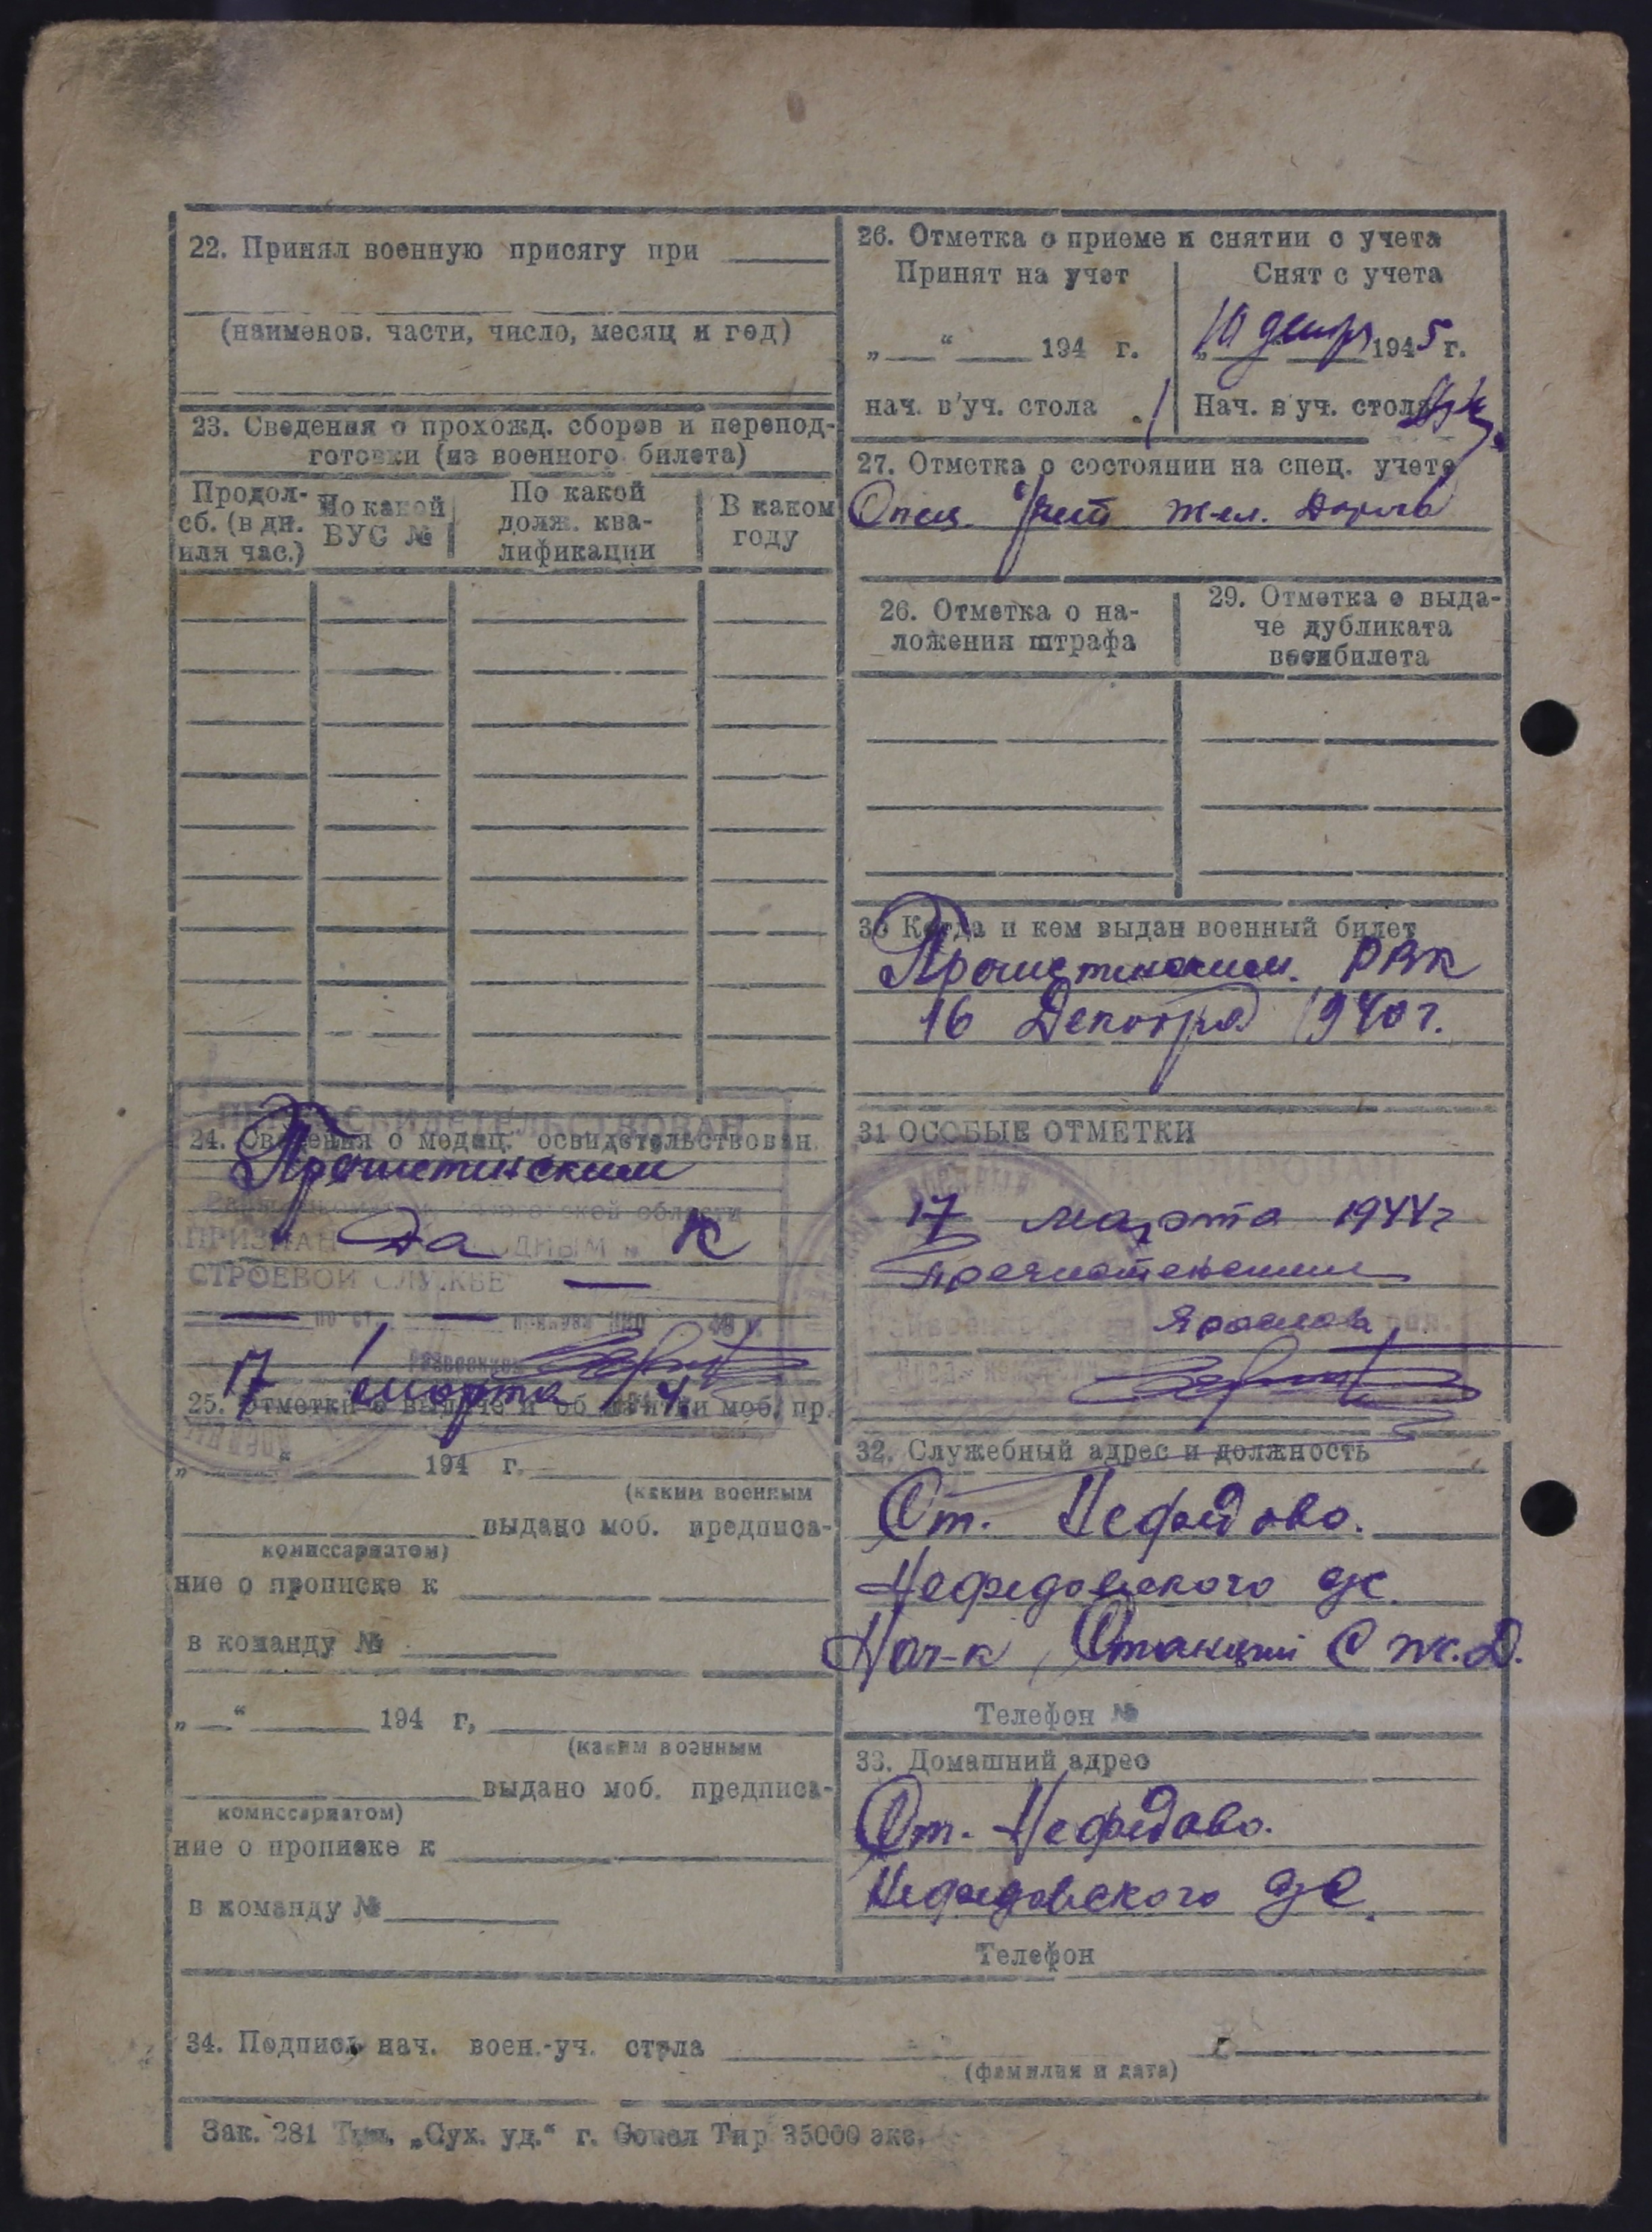 22. Принял военную присягу при
(наименов. части, число, месяц и год)
23. Сведения о прохожд. сборов и перепод-
готовки (из военного билета)
Продол-
сб. (в дн.
или час.)
По какой
ВУС №
По какой
долж. ква-
лификации
В каком
году
24. Сведения о медиц. освидетельствован.
ПЕРЕОСВИДЕТЕЛЬСТВОВАН
Пречистенским
области
ПРИЗНАН да ГОДНЫМ к
СТРОЕВОЙ СЛУЖБЕ —
— по ст. —
17 марта 1944
25. Отметки о выдаче и об изъятии моб. пр.
„ “ 194 г.
(каким военным
выдано моб. предписа-
комиссариатом)
ние о прописке к
в команду №
„ “ 194 г,
(каким военным
выдано моб. предписа-
комиссариатом)
ние о прописке к
в команду №
26. Отметка о приеме и снятии с учета
Принят на учет
„ “ 194 г.
нач. в'уч. стола
Снят с учета
10 декабр 1945 г.
Нач. в'уч. стола
27. Отметка о состоянии на спец. учете
Спец. учет жел. дороги
26. Отметка о на-
ложения штрафа
29. Отметка о выда-
че дубликата
военбилета
30 Когда и кем выдан военный билет
Пречистенским. РВК
16 Декабря 1940 г.
31 ОСОБЫЕ ОТМЕТКИ
17 марта 1944 г
Пречистенским
Ярославс обл.
32. Служебный адрес и должность
Ст. Нефедово.
Нефедовского с/с.
Нач-к Станции С ж.д.
Телефон №
33. Домашний адрес
Ст. Нефедово.
Нефедовского с/с.
Телефон
34. Подпись нач. воен.-уч. стола
(фамилия и дата)
Зак. 281 Тип. „Сух. уд.“ г. Тир 35000 экз.